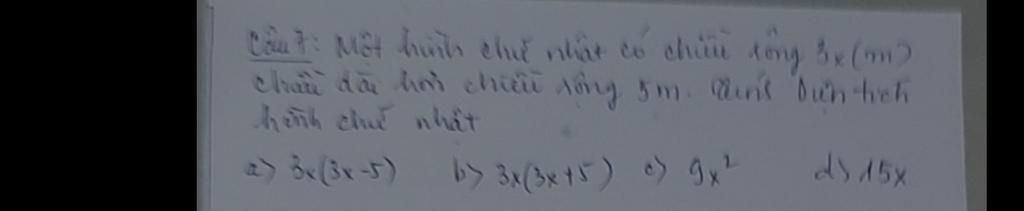 Câu 7: Một hình chữ nhật có chiều rộng 3x (m)
chiều dài hơn chiều rộng 5m. Tính Diện tích
hình chữ nhật
a> 3x(3x-5) b> 3x(3x+5) c> 9x² d> 15x